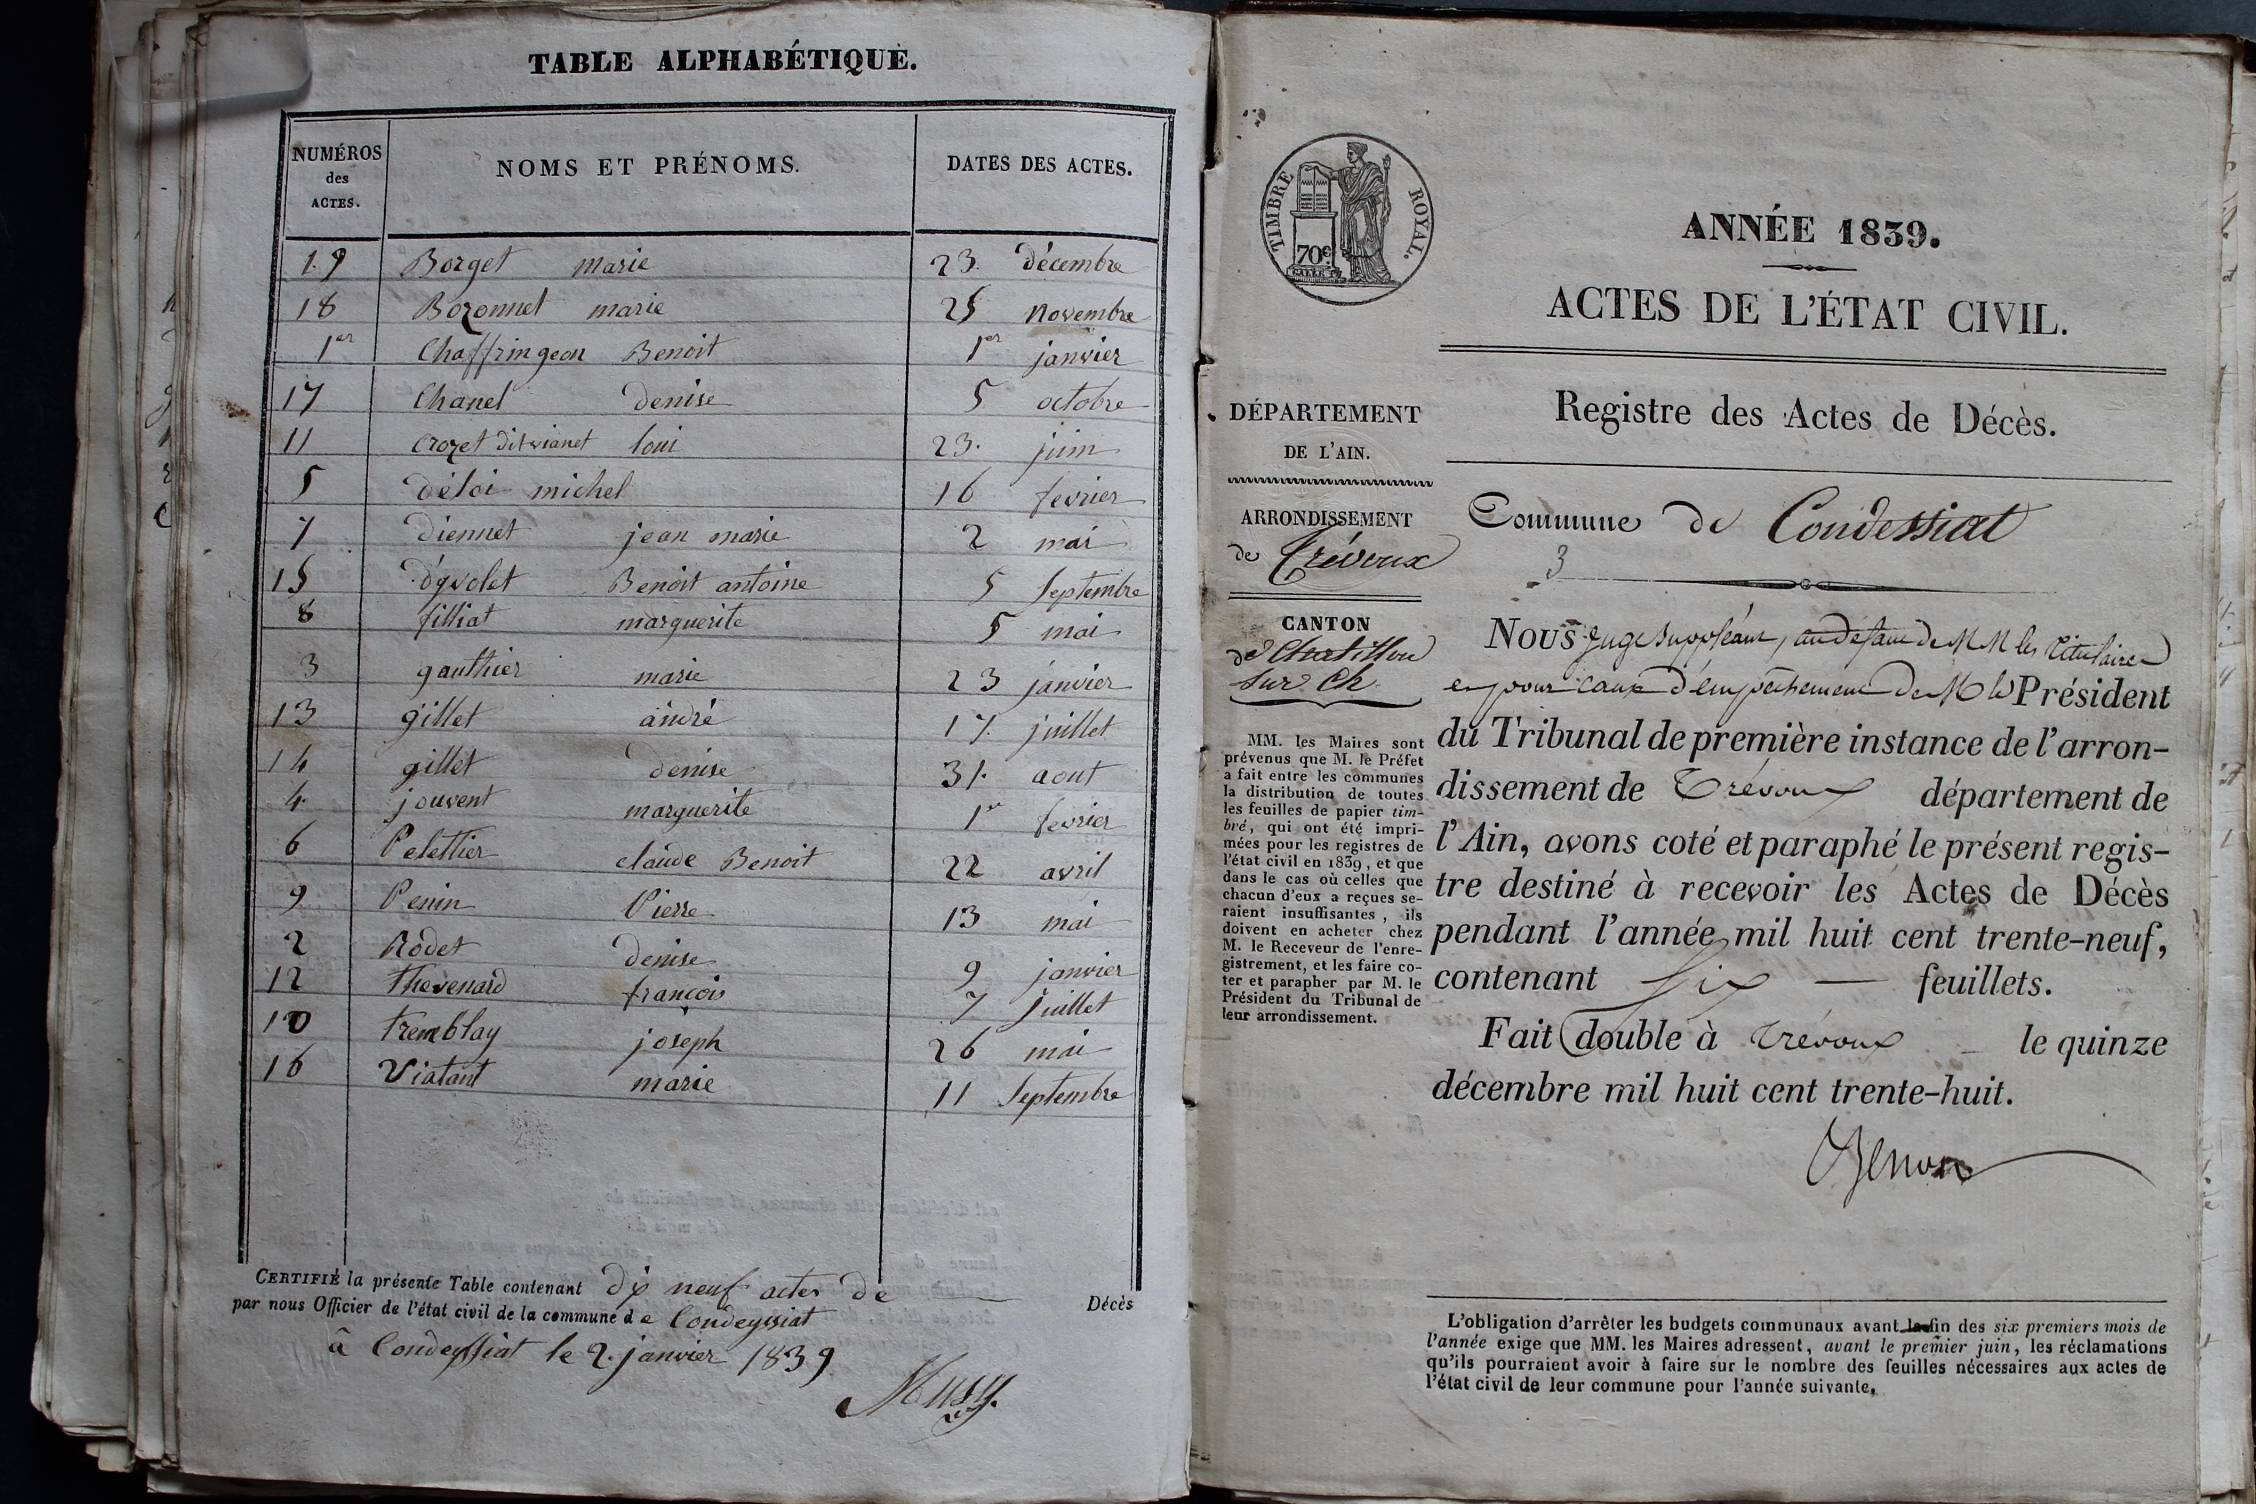 TABLE ALPHABÉTIQUE.
NUMÉROS des ACTES. NOMS ET PRÉNOMS. DATES DES ACTES.
19 Borget marie 23. décembre
18 Bozonnet marie 25 Novembre
1er Chaffringeon Benoit 1er janvier
17 Chanel denise 5 octobre
11 crozet dit vianet loui 23. juin
5 déloi michel 16 fevrier
7 diennet jean marie 2 mai
15 d'yvolet Benoit antoine 5 Septembre
8 filliat marguerite 5 mai
3 gauthier marie 23 janvier
13 gillet andré 17. juillet
14 gillet denise 31. aout
4. jouvent marguerite 1er fevrier
6 Pelettier claude Benoit 22 avril
9 Penin Pierre 13 mai
2 Rodet denise 9 janvier
12 thevenard françois 7 Juillet
10 tremblay joseph 26 mai
16 Viatant marie 11 Septembre
CERTIFIÉ la présente Table contenant dix neuf actes de Décès
par nous Officier de l'état civil de la commune de Condeyssiat
à Condeyssiat le 2. janvier 1839
Musy.
TIMBRE ROYAL.
70c
ANNÉE 1839.
ACTES DE L'ÉTAT CIVIL.
DÉPARTEMENT
DE L'AIN.
ARRONDISSEMENT
de Trévoux
CANTON
de Chatillon
sur Ch
MM. les Maires sont
prévenus que M. le Préfet
a fait entre les communes
la distribution de toutes
les feuilles de papier tim-
bré, qui ont été impri-
mées pour les registres de
l'état civil en 1839, et que
dans le cas où celles que
chacun d'eux a reçues se-
raient insuffisantes, ils
doivent en acheter chez
M. le Receveur de l'enre-
gistrement, et les faire co-
ter et parapher par M. le
Président du Tribunal de
leur arrondissement.
Registre des Actes de Décès.
Commune de Condessiat
3
NOUS Juge Suppléant, au défaut de MM les Titulaires
et pour cause d'empêchement de M le Président
du Tribunal de première instance de l'arron-
dissement de Trévoux département de
l'Ain, avons coté et paraphé le présent regis-
tre destiné à recevoir les Actes de Décès
pendant l'année mil huit cent trente-neuf,
contenant Six feuillets.
Fait double à Trévoux le quinze
décembre mil huit cent trente-huit.
L'obligation d'arrêter les budgets communaux avant la fin des six premiers mois de
l'année exige que MM. les Maires adressent, avant le premier juin, les réclamations
qu'ils pourraient avoir à faire sur le nombre des feuilles nécessaires aux actes de
l'état civil de leur commune pour l'année suivante.